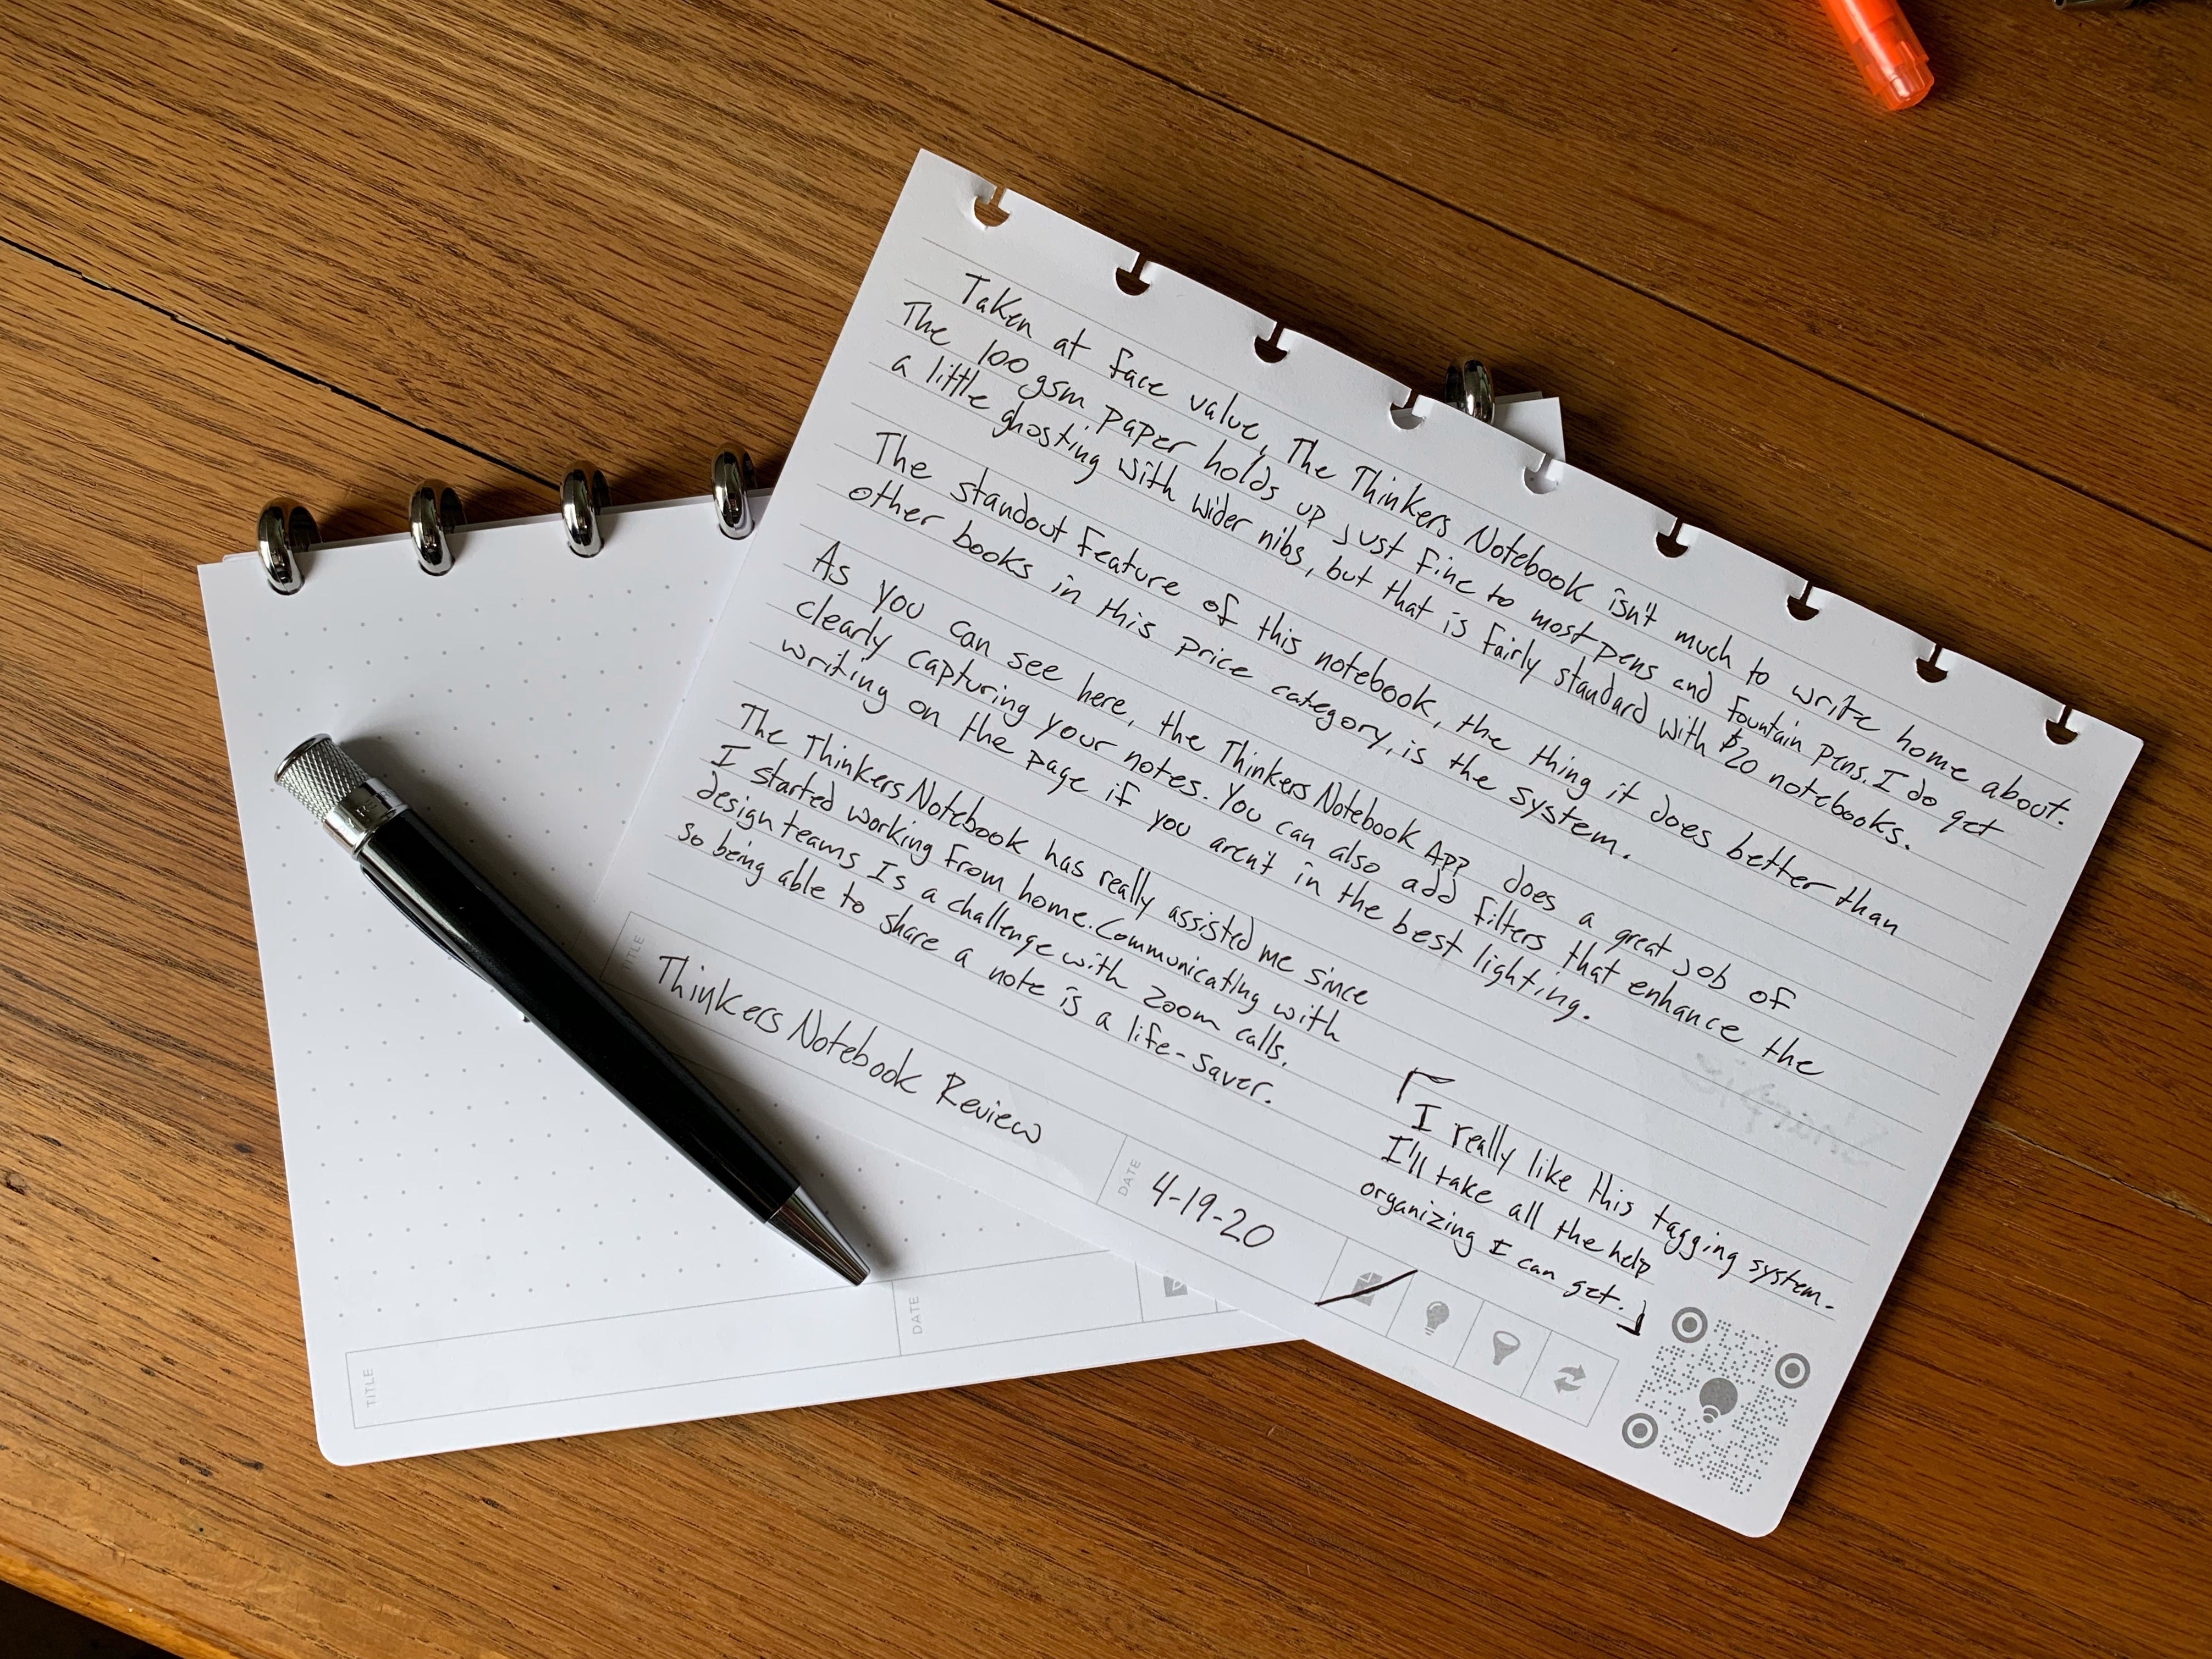 Taken at face value, The Thinkers Notebook isn't much to write home about.
The 100 gsm paper holds up just fine to most pens and fountain pens. I do get
a little ghosting with wider nibs, but that is fairly standard with $20 notebooks.
The standout feature of this notebook, the thing it does better than
other books in this price category, is the system.
As you can see here, the Thinkers Notebook App does a great job of
clearly capturing your notes. You can also add filters that enhance the
writing on the page if you aren't in the best lighting.
The Thinkers Notebook has really assisted me since
I started working from home. Communicating with
design teams Is a challenge with zoom calls.
so being able to share a note is a life-saver.
I really like this tagging system.
I'll take all the help
organizing I can get.
TITLE
Thinkers Notebook Review
DATE
4-19-20
Sharpie
TITLE
DATE